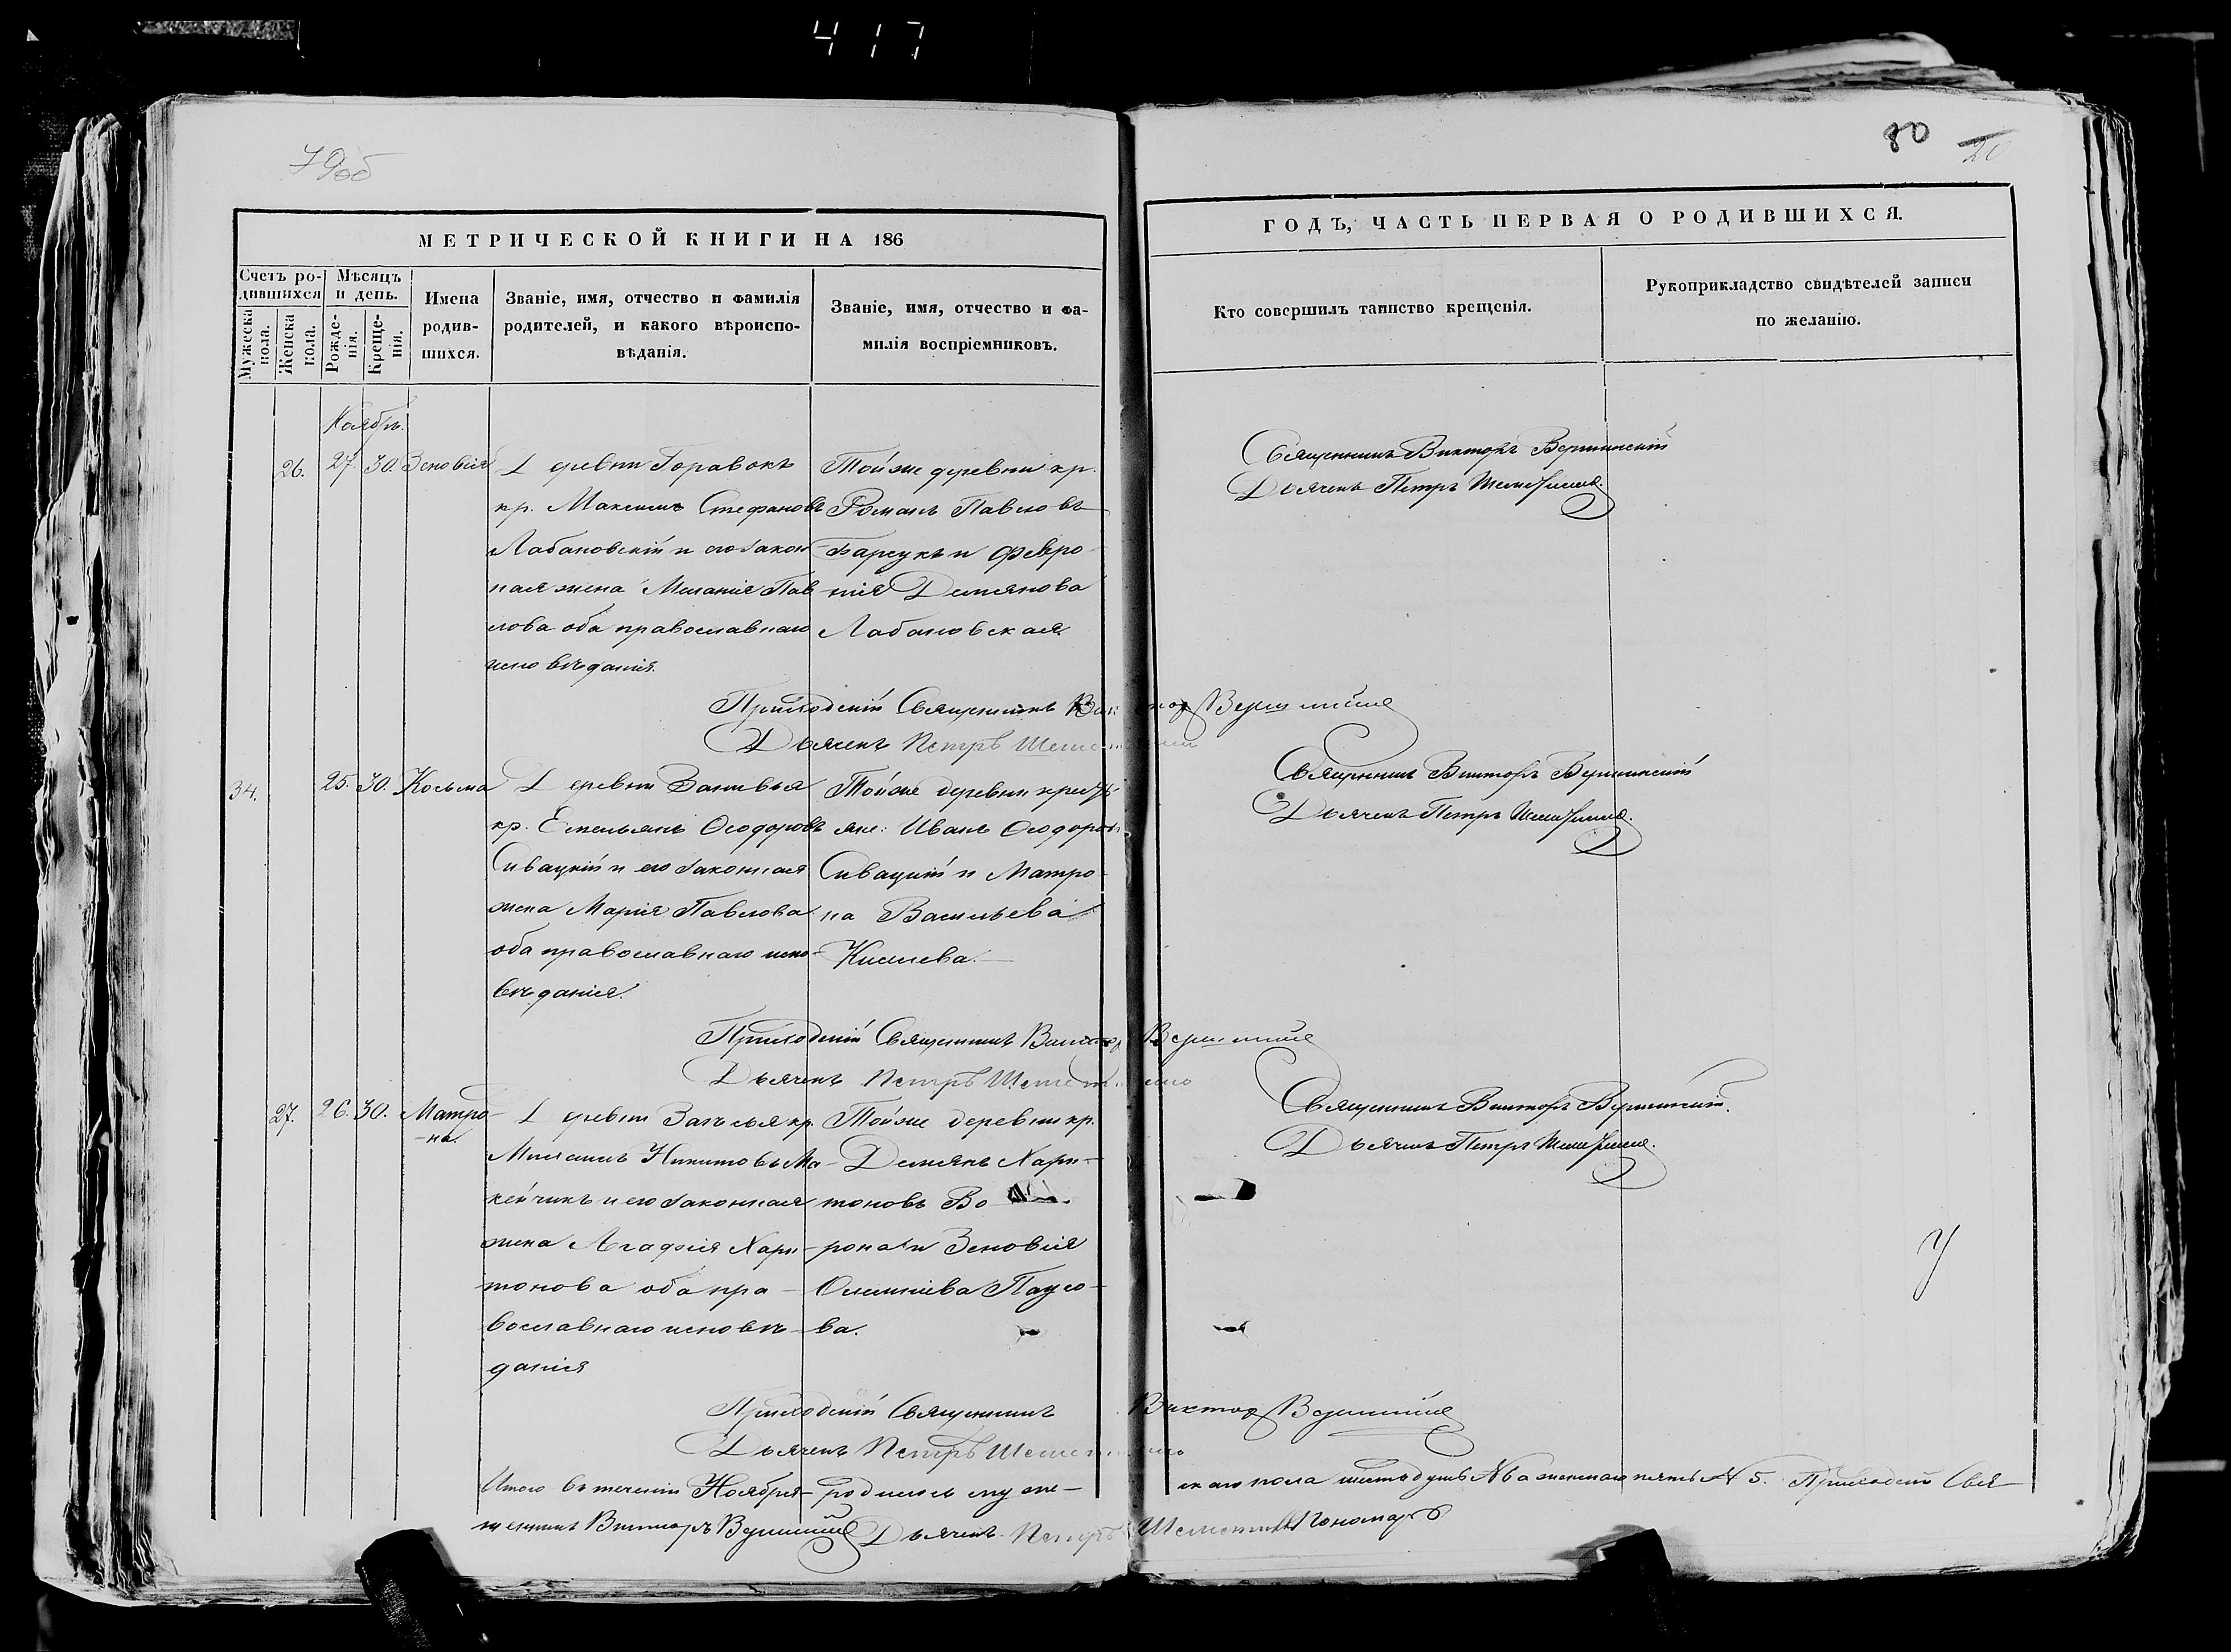 417
79об
80
20
МЕТРИЧЕСКОЙ КНИГИ НА 186
Счетъ ро-
дившихся
Мужеска
пола.
Женска
пола.
Мѣсяцъ
и день.
Рожде-
нія.
Креще-
нія.
Имена
родив-
шихся.
Званіе, имя, отчество и фамилія
родителей, и какого вѣроиспо-
вѣданія.
Званіе, имя, отчество и фа-
милія воспріемниковъ.
ГОДЪ, ЧАСТЬ ПЕРВАЯ О РОДИВШИХСЯ.
Кто совершилъ таинство крещенія.
Рукоприкладство свидѣтелей записи
по желанію.
Ноябрь.
26.
27.
30.
Зеновія
Деревни Горавокъ
кр. Максимъ Стефановъ
Лабановскій и его закон-
ная жена Меланія Пав-
лова оба православнаго
исповѣданія.
Тойже деревни кр.
Романъ Павловъ
Барсукъ и Февро-
нія Демянова
Лабановская.
Священникъ Викторъ
Дьячекъ Петръ
Приходскій Священникъ Виктор
Дьячекъ Петръ
34.
25.
30.
Косьма
Деревни
кр. Емельянъ Ѳеодоровъ
Сивацкій и его законная
жена Марія Павлова
оба православнаго испо-
вѣданія.
Тойже деревни
Иванъ Ѳеодоровъ
Сивацкій и Матро-
на Васильева
Киселева.
Священникъ Викторъ
Дьячекъ Петръ
Приходскій Священникъ Виктор
Дьячекъ Петръ
27.
26.
30.
Матро-
-на.
Деревни кр.
Никитовъ Ма-
кейчикъ и его законная
жена Агафія Хари-
тонова оба пра-
вославнаго исповѣ-
данія
Тойже деревни кр.
Демянъ Хари-
тоновъ Во
рона и Зеновія
ва.
Священникъ Викторъ
Дьячекъ Петръ
Приходскій Священникъ Виктор
Дьячекъ Петръ
Итого въ теченіи Ноября родилось муже-
скаго пола шесть душъ №6 а женскаго пять № 5. Приходскій Свя-
щенникъ Викторъ Дьячекъ Петръ Пономарь